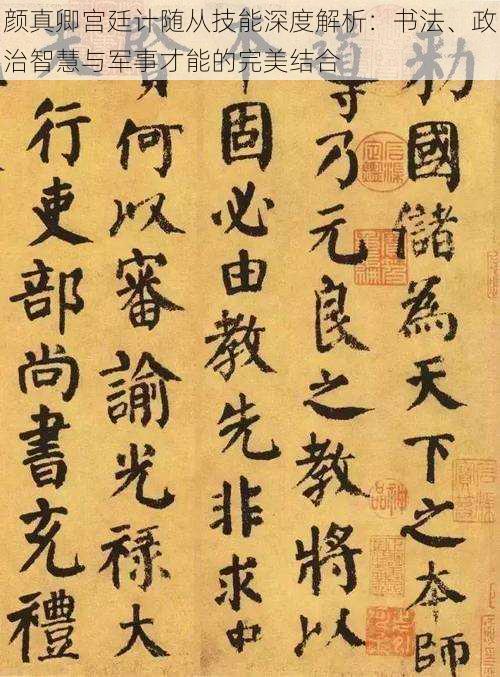 颜真卿宫廷计随从技能深度解析：书法、政
治智慧与军事才能的完美结合
勅國儲為天下之本師
導乃元良之教將以
本固必由教先非求中
賢何以審諭光祿大
夫行吏部尚書充禮